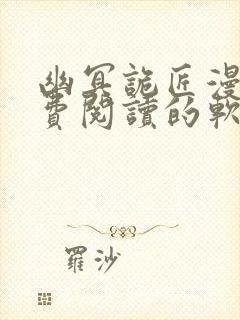 幽冥詭匠漫
費閱讀的軟
羅沙